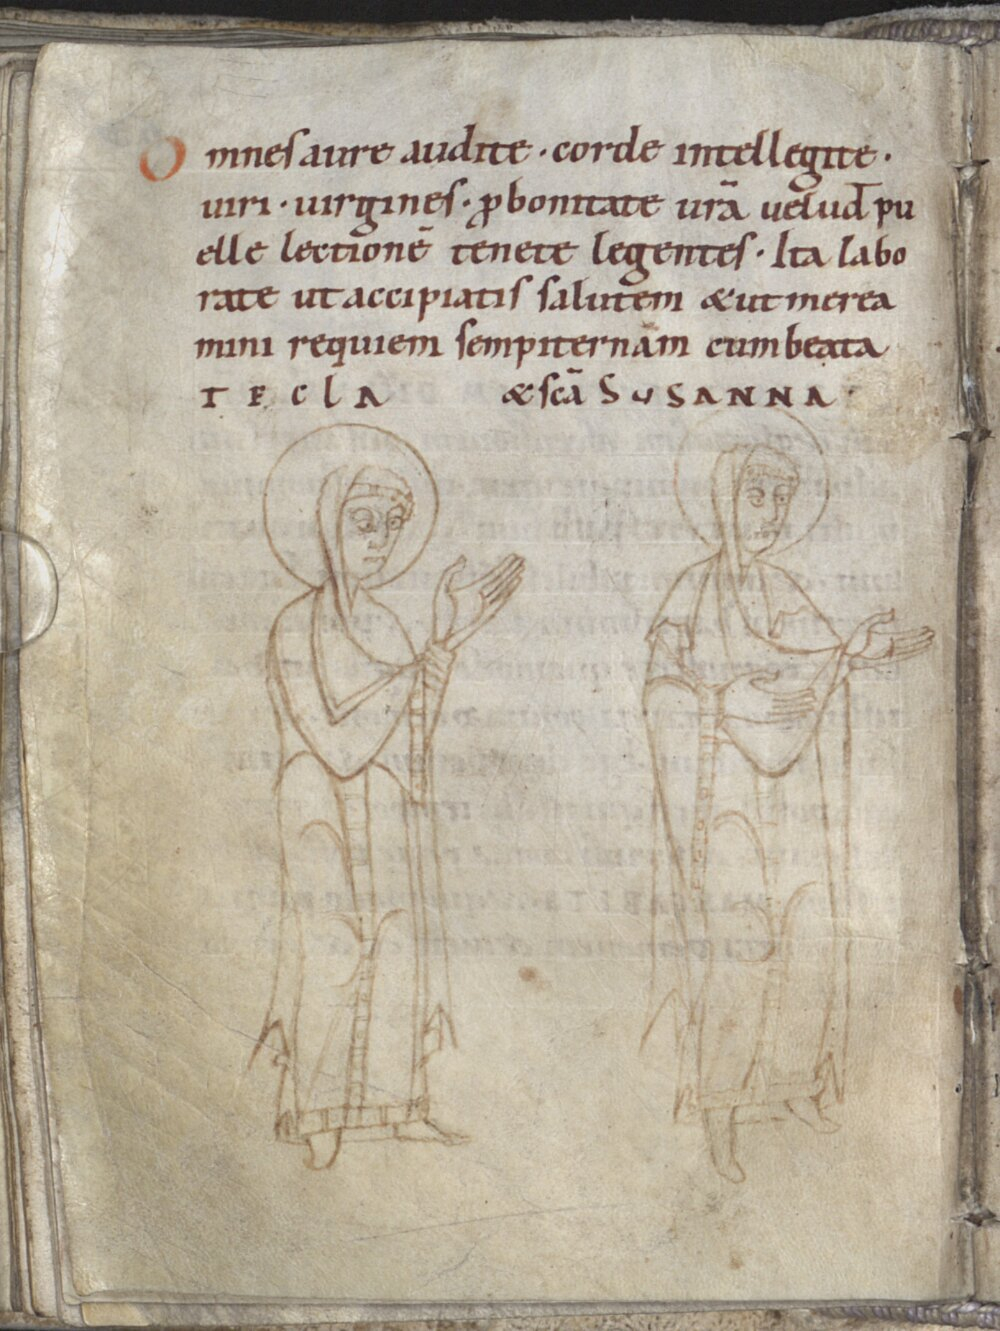 Omnes aure audite · corde intellegite ·
uiri · uirgines · ꝓ bonitate urā uelud pu
elle lectionē tenete legentes · Ita labo
rate ut accipiatis salutem & ut merea
mini requiem sempiternam cum beata
TECLA & scā SUSANNA ·